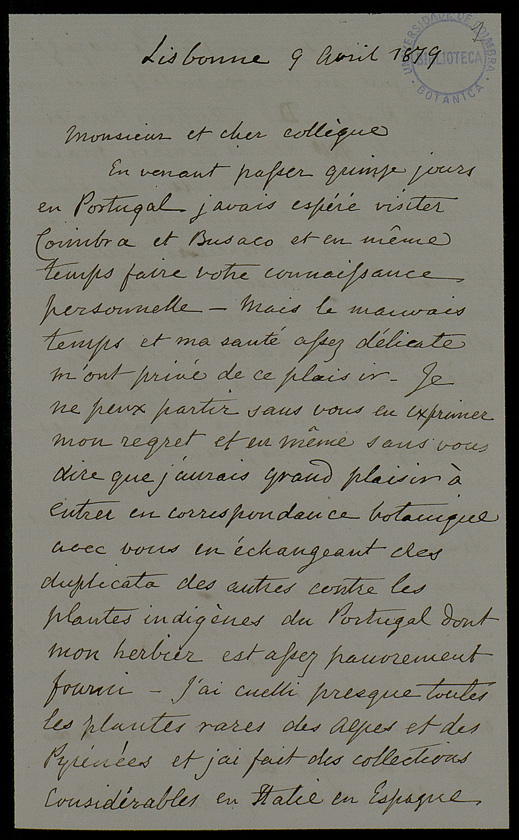 Lisbonne 9 avril 1879
UNIVERSIDADE DE COIMBRA
BIBLIOTECA
BOTANICA
Monsieur et cher collègue
En venant passer quinze jours
en Portugal j'avais espéré visiter
Coimbra et Busaco et en même
temps faire votre connaissance
personnelle – Mais le mauvais
temps et ma santé assez délicate
m'ont privé de ce plaisir – Je
ne peux partir sans vous en exprimer
mon regret et en même sans vous
dire que j'aurais grand plaisir à
entrer en correspondance botanique
avec vous en échangeant des
duplicata des autres contre les
plantes indigènes du Portugal dont
mon herbier est assez pauvrement
fourni – J'ai cueilli presque toutes
les plantes rares des Alpes et des
Pyrénées et j'ai fait des collections
considérables en Italie en Espagne